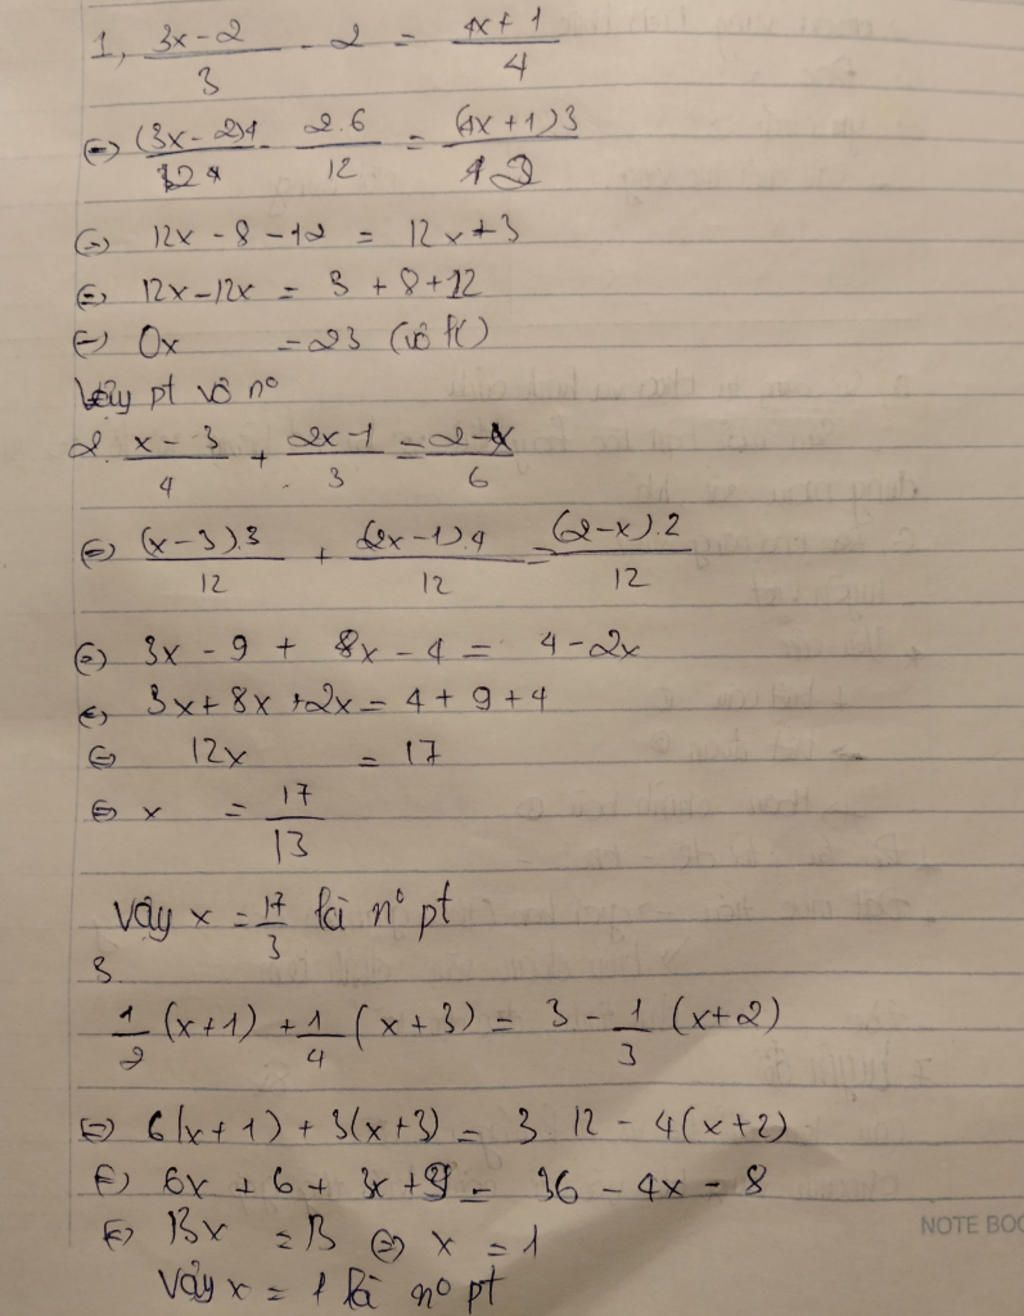 1, (3x - 2)/3 - 2 = (4x + 1)/4
⇔ (3x - 2)4/12 - 2.6/12 = (4x + 1)3/12
⇔ 12x - 8 - 12 = 12x + 3
⇔ 12x - 12x = 3 + 8 + 12
⇔ 0x = 23 (vô lí)
Vậy pt vô nº
2. (x - 3)/4 + (2x - 1)/3 = (2 - x)/6
⇔ (x - 3).3/12 + (2x - 1).4/12 = (2 - x).2/12
⇔ 3x - 9 + 8x - 4 = 4 - 2x
⇔ 3x + 8x + 2x = 4 + 9 + 4
⇔ 12x = 17
⇔ x = 17/13
Vậy x = 17/3 là nº pt
3.
1/2 (x + 1) + 1/4 (x + 3) = 3 - 1/3 (x + 2)
⇔ 6(x + 1) + 3(x + 3) = 3 . 12 - 4(x + 2)
⇔ 6x + 6 + 3x + 9 = 36 - 4x - 8
⇔ 13x = 13 ⇔ x = 1
Vậy x = 1 là nº pt
NOTE BOO